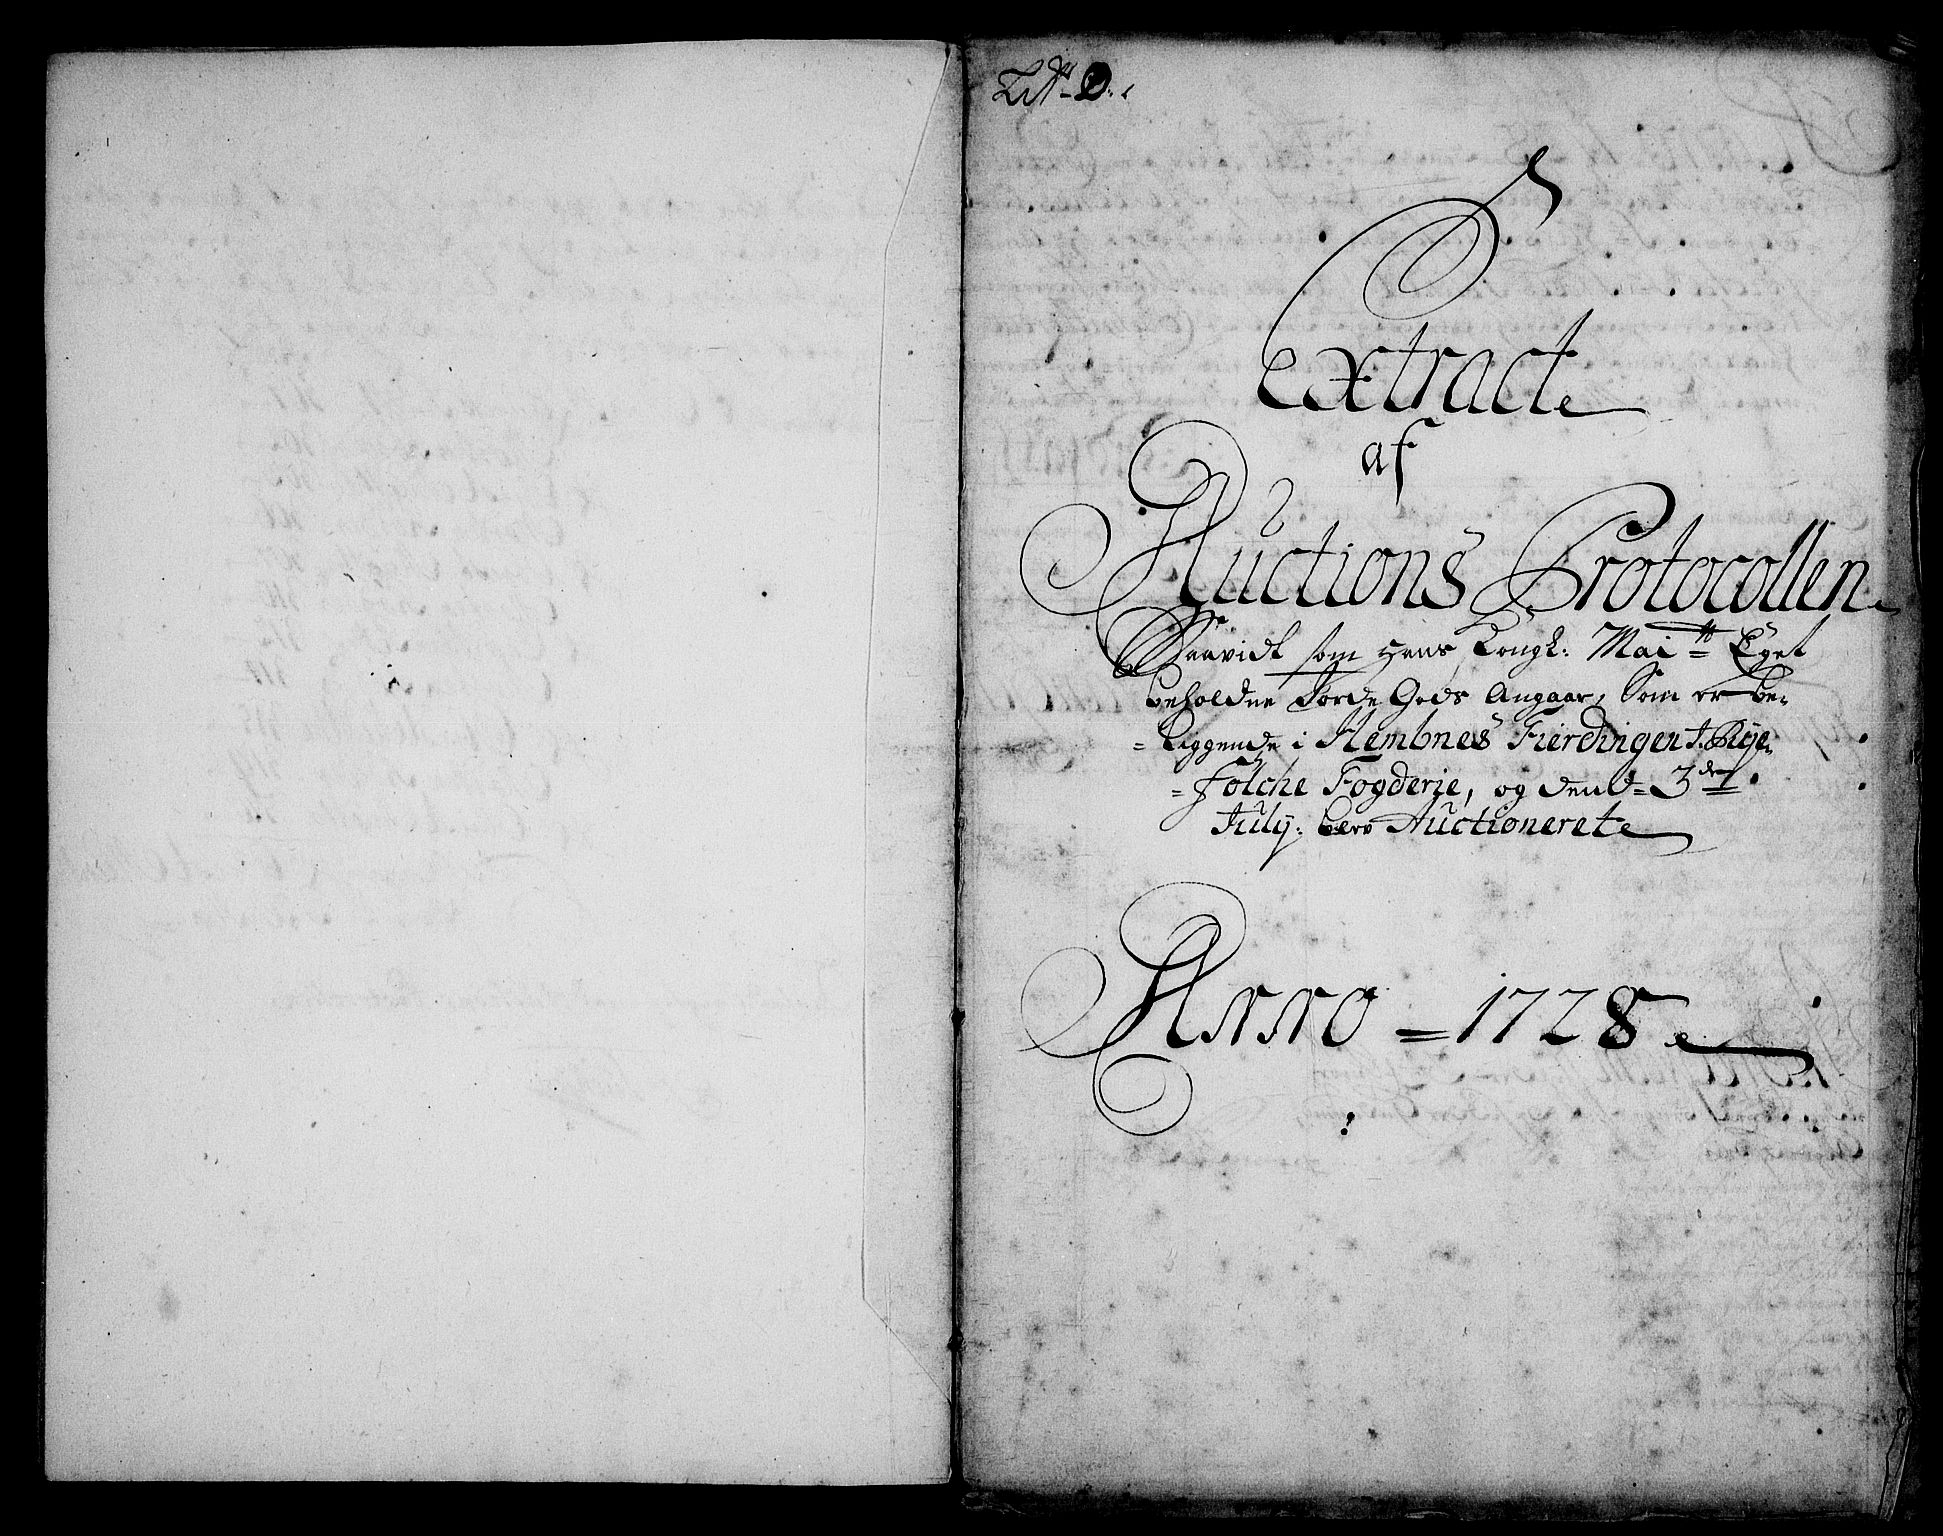 Litr D.
Extract
af
Auctions Protocollen
Saavidt som Hans Kongl: Maitt Eget
beholdne Jorde Gods Angaar, Som er be-
liggende i Hembnes Fierdingen i Helge-
Folche Fogderie, og dend 3de
July: blev Auctioneret
Anno 1728